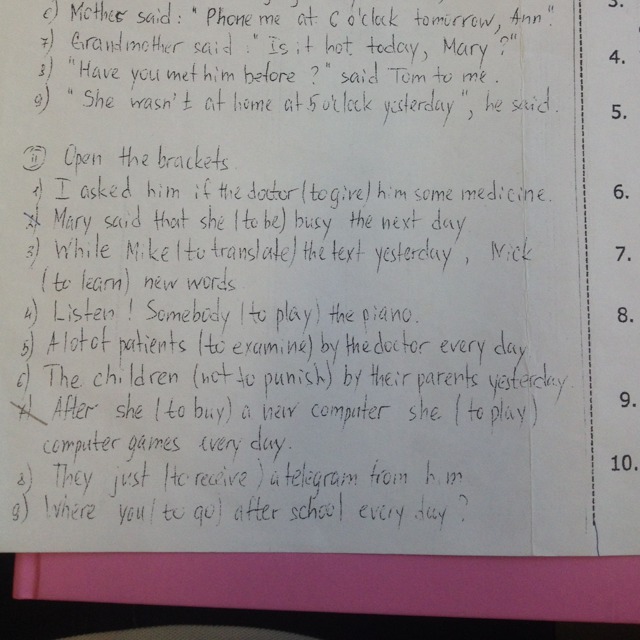 6) Mother said: "Phone me at 6 o'clock tomorrow, Ann".
7) Grandmother said: "Is it hot today, Mary?"
8) "Have you met him before?" said Tom to me.
9) "She wasn't at home at 5 o'clock yesterday", he said.
II Open the brackets.
1) I asked him if the doctor (to give) him some medicine.
2) Mary said that she (to be) busy the next day
3) While Mike (to translate) the text yesterday, Nick
(to learn) new words
4) Listen! Somebody (to play) the piano.
5) A lot of patients (to examine) by the doctor every day
6) The children (not to punish) by their parents yesterday.
7) After she (to buy) a new computer she (to play)
computer games every day.
8) They just (to receive) a telegram from him
9) Where you (to go) after school every day?
3.
4.
5.
6.
7.
8.
9.
10.